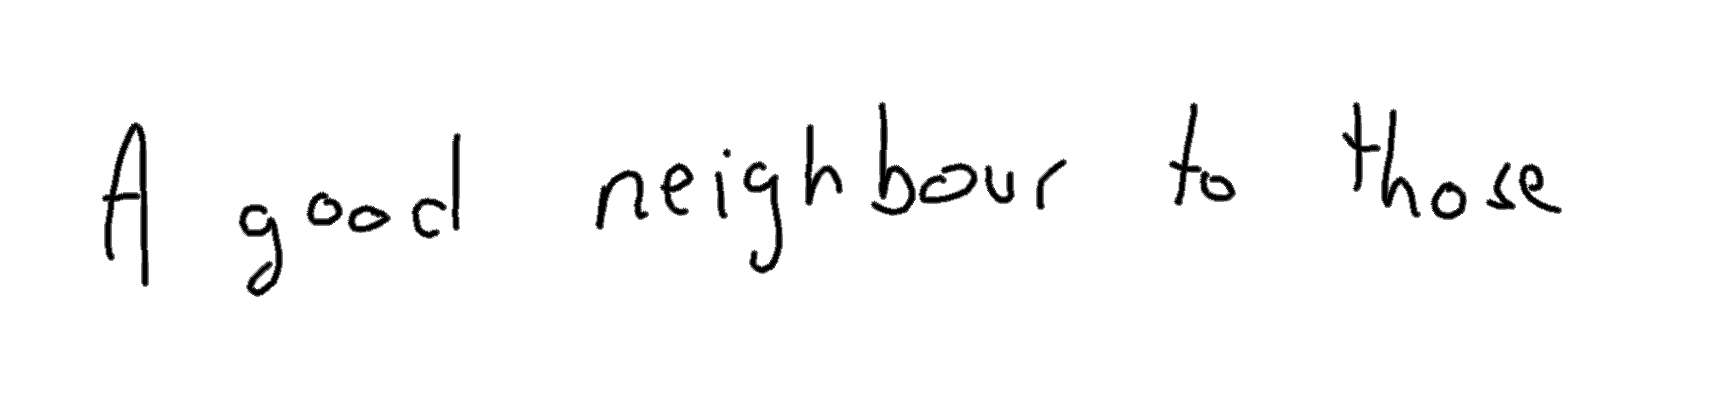 A good neighbour to those